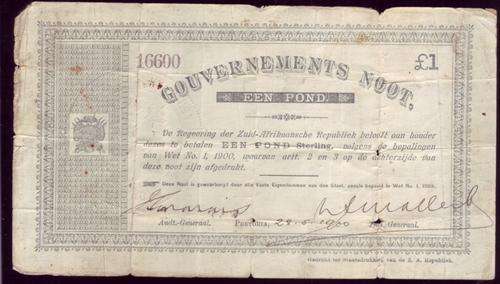 16600 £1
GOUVERNEMENTS NOOT,
EEN POND
De Regeering der Zuid-Afrikaansche Republiek belooft aan houder
dezes te betalen EEN POND Sterling, volgens de bepalingen
van Wet No. 1, 1900, waarvan artt. 2 en 3 op de achterzijde van
deze noot zijn afgedrukt.
Deze Noot is gewaarborgd door alle Vaste Eigendommen van den Staat, zooals bepaald in Wet No. 1, 1900.
Audt.-Generaal. PRETORIA, 28 1900 -Generaal.
Gedrukt ter Staatsdrukkerij van de Z. A. Republiek.